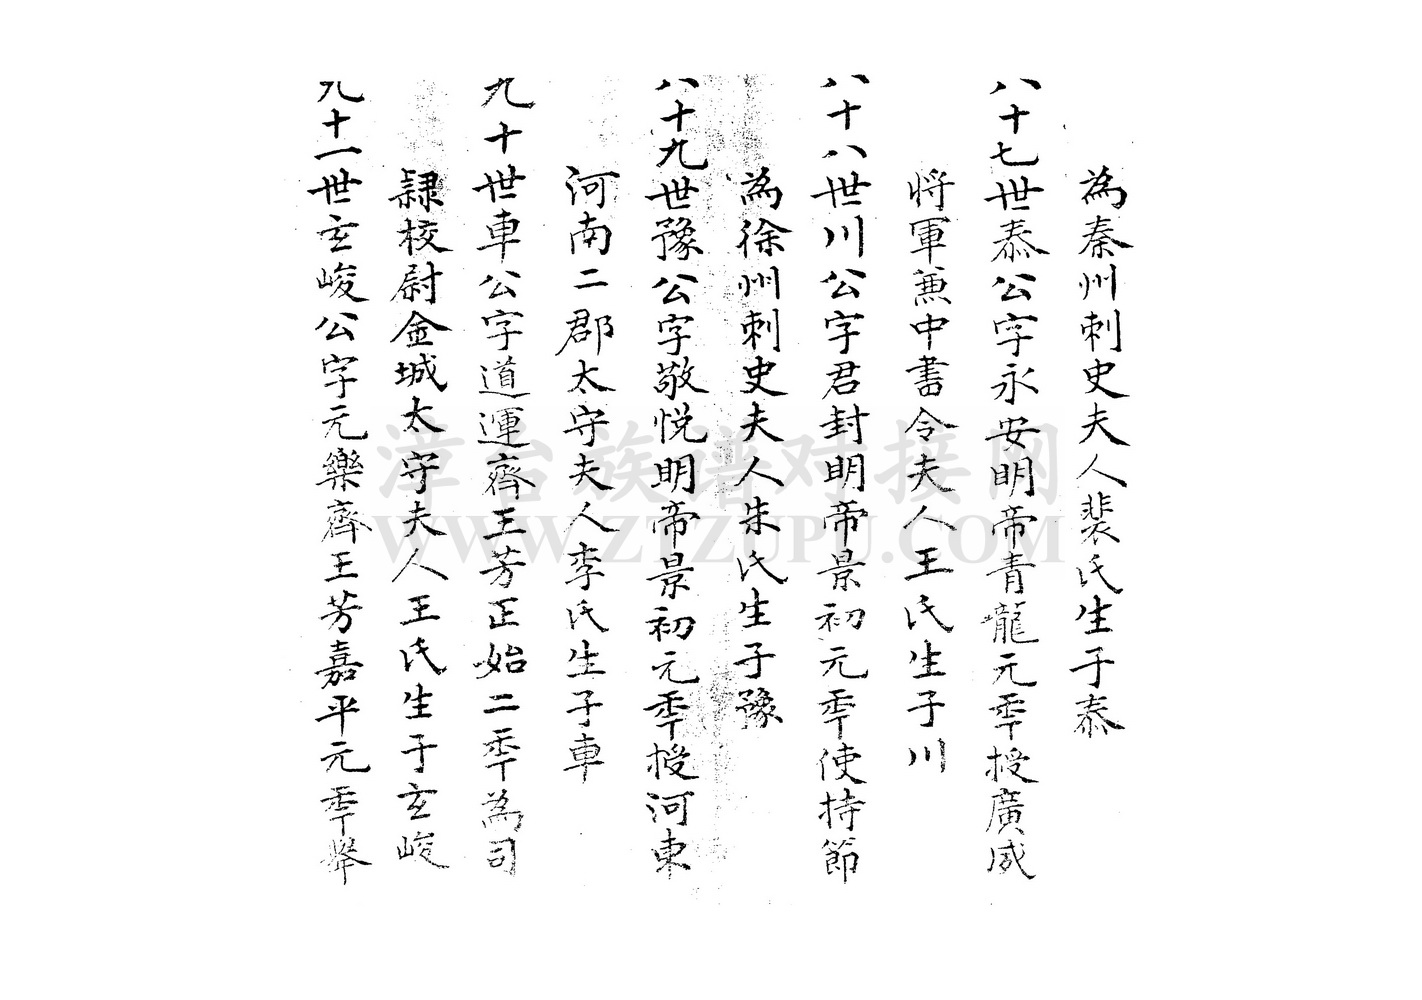 為秦州刺史夫人裴氏生子泰
八十七世泰公字永安明帝青龍元秊授廣威
將軍兼中書令夫人王氏生子川
八十八世川公字君封明帝景初元秊使持節
為徐州刺史夫人朱氏生子豫
八十九世豫公字敬悦明帝景初元秊授河東
河南二郡太守夫人李氏生子車
九十世車公字道運齊王芳正始二秊為司
隸校尉金城太守夫人王氏生子玄峻
九十一世玄峻公字元樂齊王芳嘉平元秊舉
漳台族谱对接网
WWW.ZTZUPU.COM